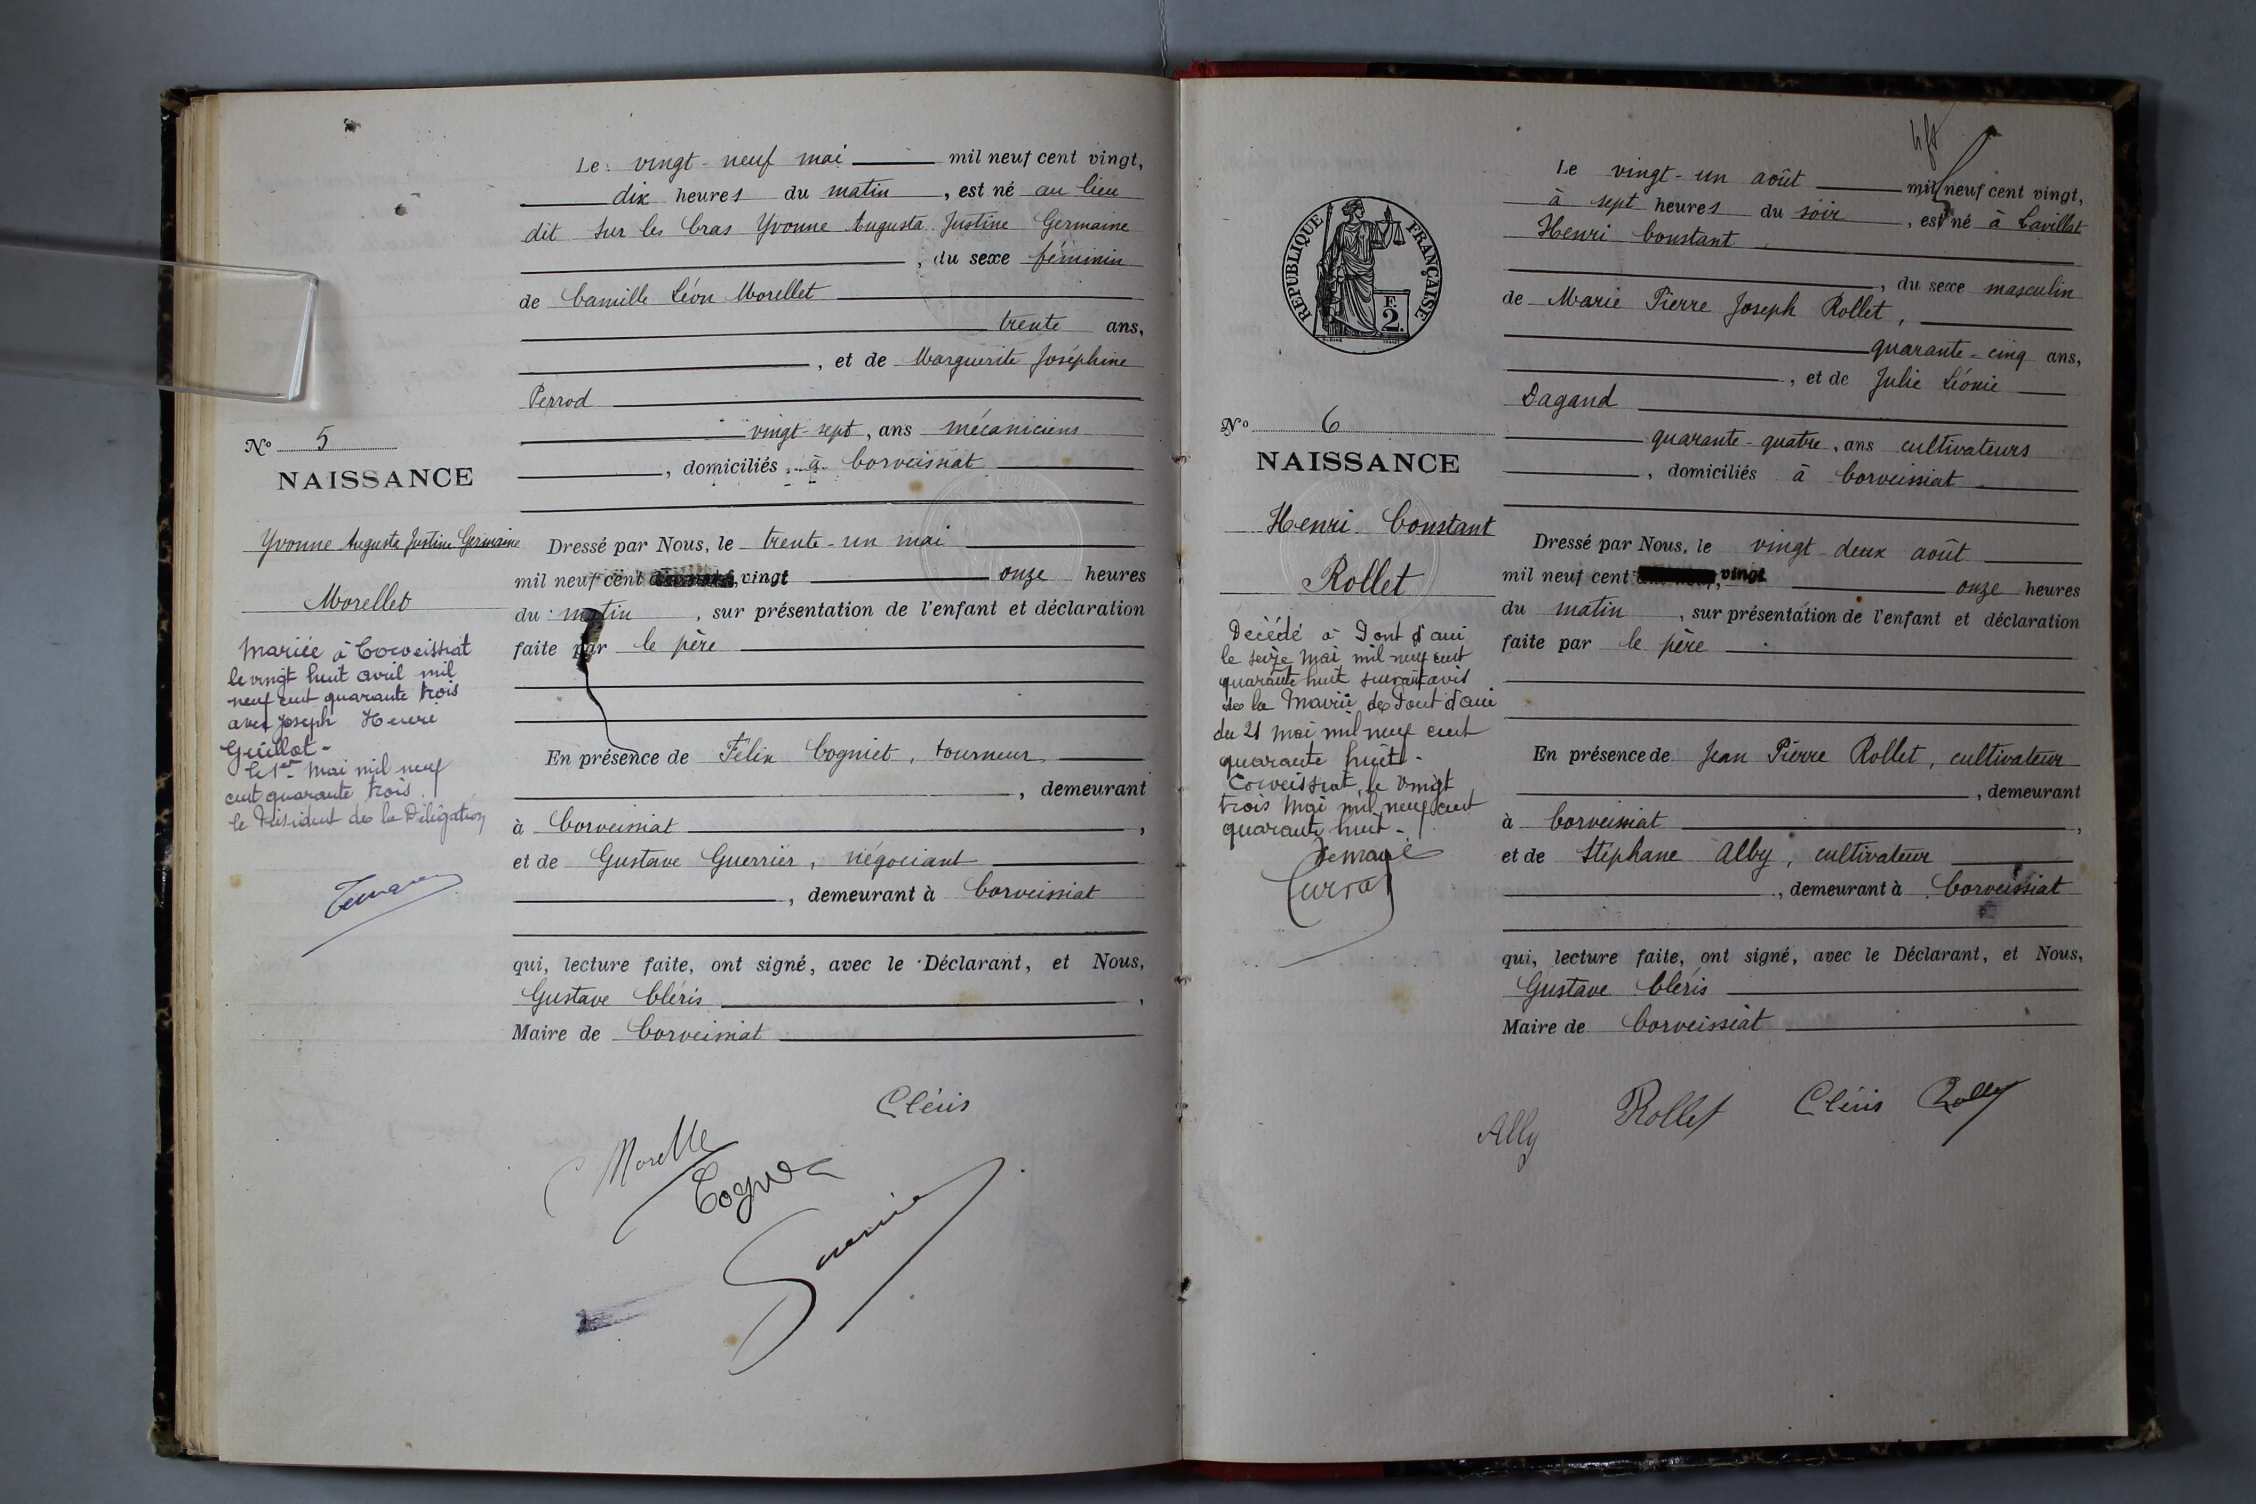 Le vingt-neuf mai mil neuf cent vingt,
dix heures du matin, est né au lieu
dit sur les Cras Yvonne Augusta Justine Germaine
, du sexe féminin
de Camille Léon Morellet
trente ans,
, et de Marguerite Joséphine
Perrod
vingt-sept, ans mécaniciens
, domiciliés à Corveissiat
Nº 5
NAISSANCE
Yvonne Augusta Justine Germaine
Morellet
Mariée à Corveissiat
le vingt huit avril mil
neuf cent quarante trois
avec Joseph Henri
Guillot-
le 1er Mai mil neuf
cent quarante trois.
le Président de la Délégation
Dressé par Nous, le trente-un mai
mil neuf cent vingt onze heures
du matin, sur présentation de l'enfant et déclaration
faite par le père
En présence de Félix Cogniet, tourneur
, demeurant
à Corveissiat,
et de Gustave Guerrier, négociant
, demeurant à Corveissiat
qui, lecture faite, ont signé, avec le Déclarant, et Nous,
Gustave Cléris,
Maire de Corveissiat
Cléris
Le vingt-un août mil neuf cent vingt,
à sept heures du soir, est né à Cavillat
Henri Constant
, du sexe masculin
de Marie Pierre Joseph Rollet,
quarante-cinq ans,
, et de Julie Léonie
Dagand
quarante-quatre, ans cultivateurs
, domiciliés à Corveissiat
RÉPUBLIQUE FRANÇAISE
F.
2.
Nº 6
NAISSANCE
Henri Constant
Rollet
Décédé à Pont d'ain
le seize Mai mil neuf cent
quarante huit suivant avis
de la Mairie de Pont d'ain
du 21 Mai mil neuf cent
quarante huit-
Corveissiat, le vingt
trois Mai mil neuf cent
quarante huit-
Le Maire
Dressé par Nous, le vingt-deux août
mil neuf cent vingt onze heures
du matin, sur présentation de l'enfant et déclaration
faite par le père
En présence de Jean Pierre Rollet, cultivateur
, demeurant
à Corveissiat,
et de Stéphane Alby, cultivateur
, demeurant à Corveissiat
qui, lecture faite, ont signé, avec le Déclarant, et Nous,
Gustave Cléris
Maire de Corveissiat
Alby Rollet Cléris Rollet